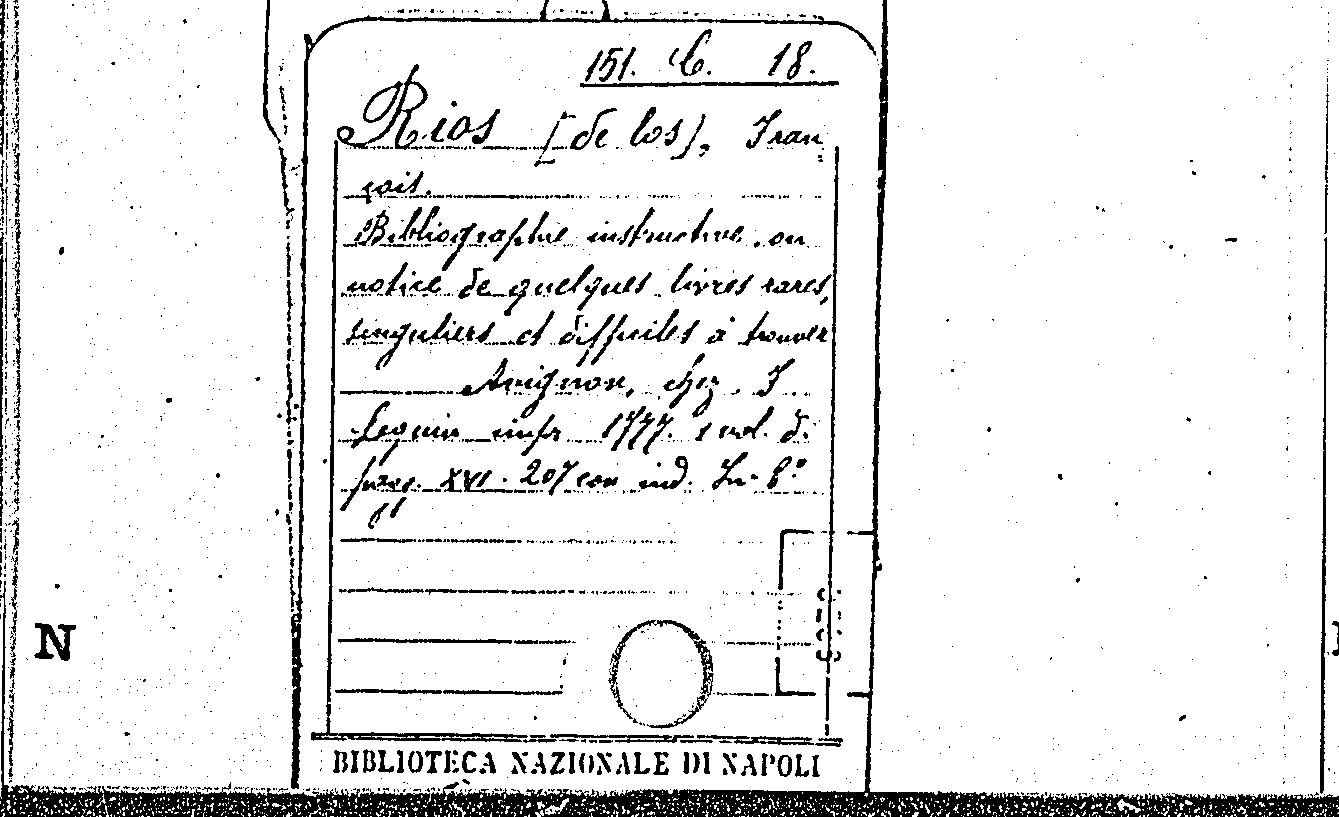 151. C. 18.
Rios [de los], Fran
çois.
Bibliographie instructive, ou
notice de quelques livres rares,
singuliers et difficiles à trouver
Avignon, chez J
Seguin impr 1777. 1 vol. di
pag. XVI. 207 con ind. In-8°
N
BIBLIOTECA NAZIONALE DI NAPOLI